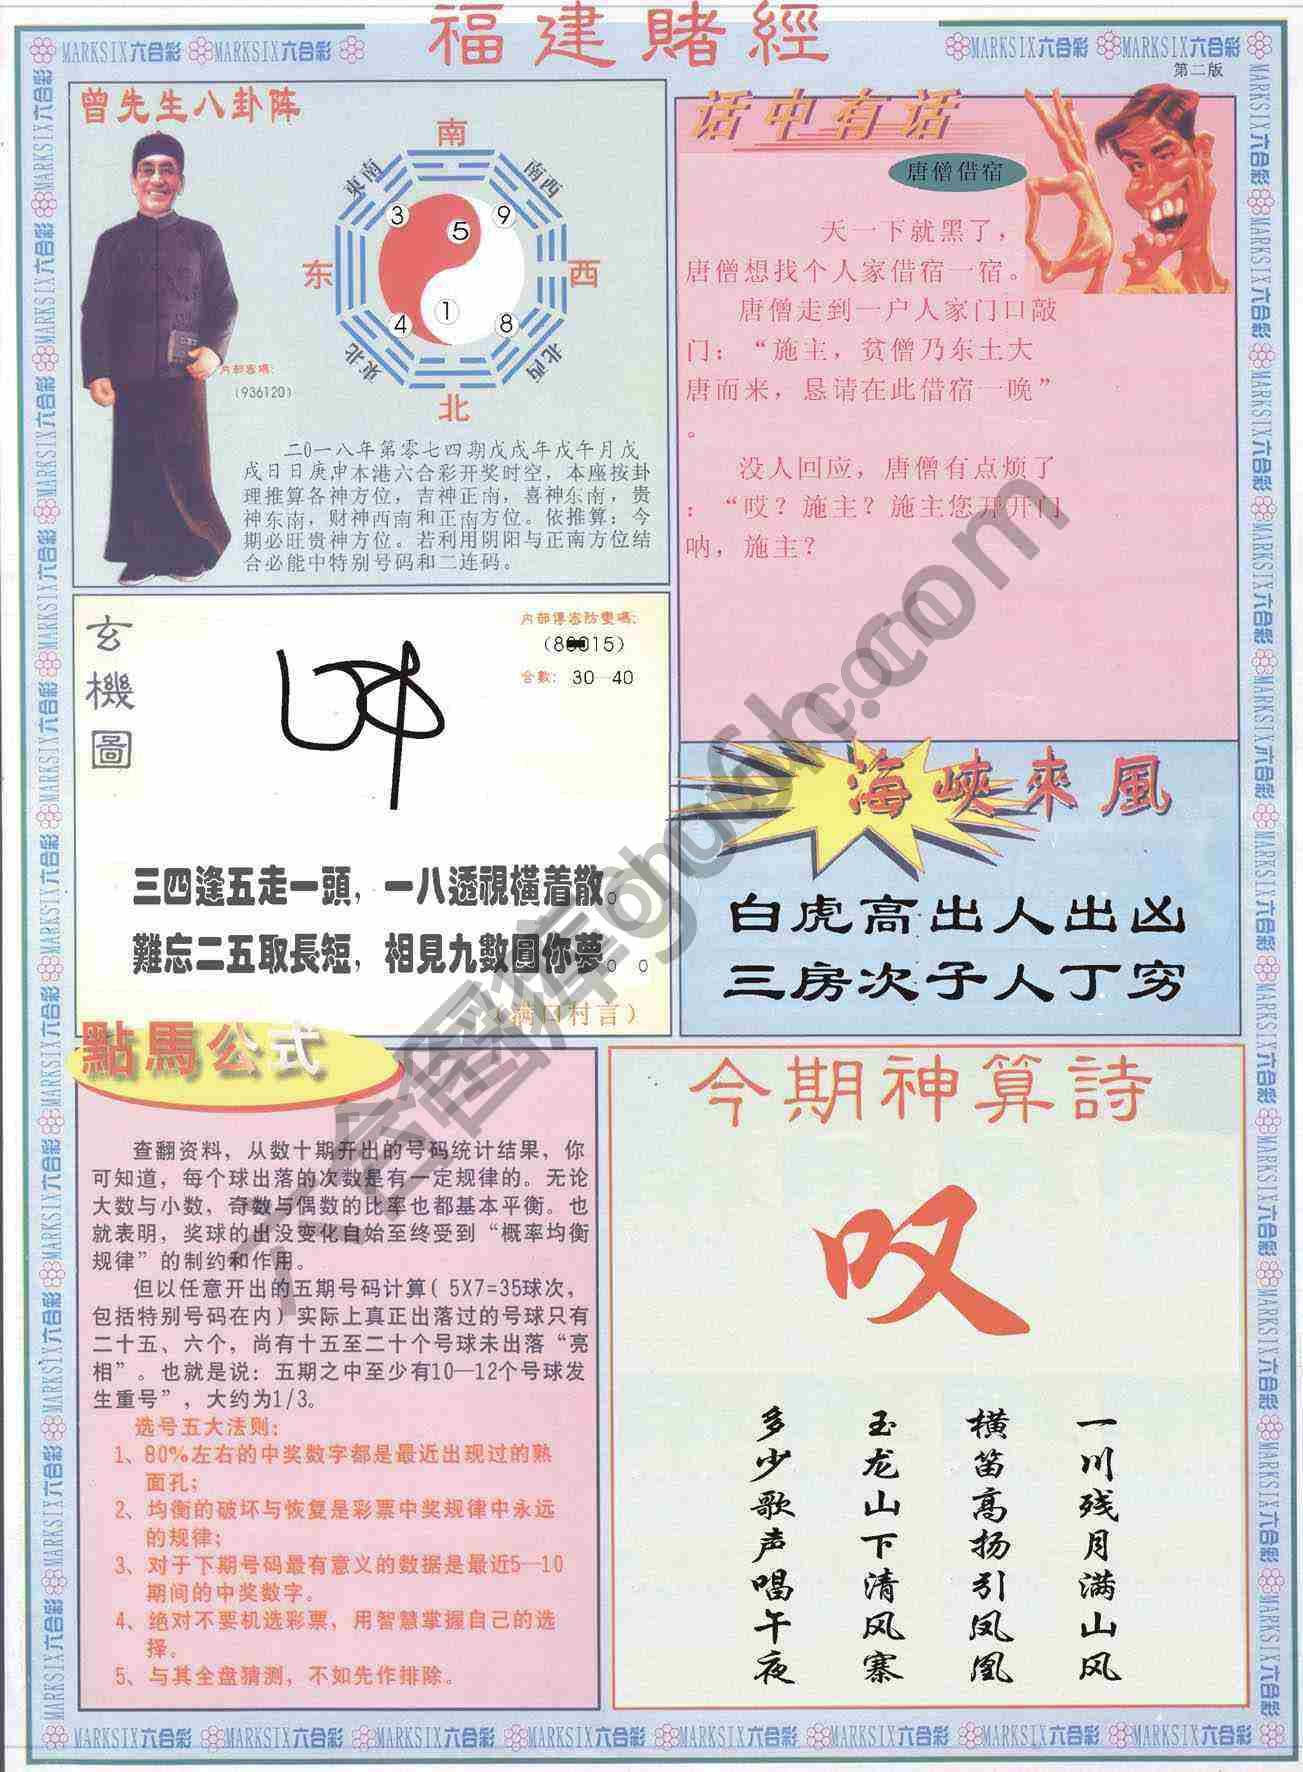 福建賭經
第二版
MARKSIX六合彩
曾先生八卦阵
南
東南
南西
3
5
9
东
西
4
1
8
東北
北西
北
内部密碼:
(936120)
二0一八年第零七四期戊戌年戊午月戊
戌日日庚申本港六合彩开奖时空，本座按卦
理推算各神方位，吉神正南，喜神东南，贵
神东南，财神西南和正南方位。依推算：今
期必旺贵神方位。若利用阴阳与正南方位结
合必能中特别号码和二连码。
话中有话
唐僧借宿
天一下就黑了，
唐僧想找个人家借宿一宿。
唐僧走到一户人家门口敲
门：“施主，贫僧乃东土大
唐而来，恳请在此借宿一晚”
。
没人回应，唐僧有点烦了
：“哎？施主？施主您开开门
呐，施主？
玄機圖
内部傳密防變碼:
合數: 30—40
三四逢五走一頭，一八透視橫着散。
難忘二五取長短，相見九數圓你夢。。
(满口村言)
海峽來風
白虎高出人出凶
三房次子人丁穷
點馬公式
查翻资料，从数十期开出的号码统计结果，你
可知道，每个球出落的次数是有一定规律的。无论
大数与小数，奇数与偶数的比率也都基本平衡。也
就表明，奖球的出没变化自始至终受到“概率均衡
规律”的制约和作用。
但以任意开出的五期号码计算( 5X7=35球次，
包括特别号码在内)实际上真正出落过的号球只有
二十五、六个，尚有十五至二十个号球未出落“亮
相”。也就是说：五期之中至少有10—12个号球发
生重号”，大约为1/3。
选号五大法则:
1、80%左右的中奖数字都是最近出现过的熟
面孔;
2、均衡的破坏与恢复是彩票中奖规律中永远
的规律;
3、对于下期号码最有意义的数据是最近5—10
期间的中奖数字。
4、绝对不要机选彩票，用智慧掌握自己的选
择。
5、与其全盘猜测，不如先作排除。
今期神算詩
叹
一川残月满山风
横笛高扬引凤凰
玉龙山下清风寨
多少歌声唱午夜